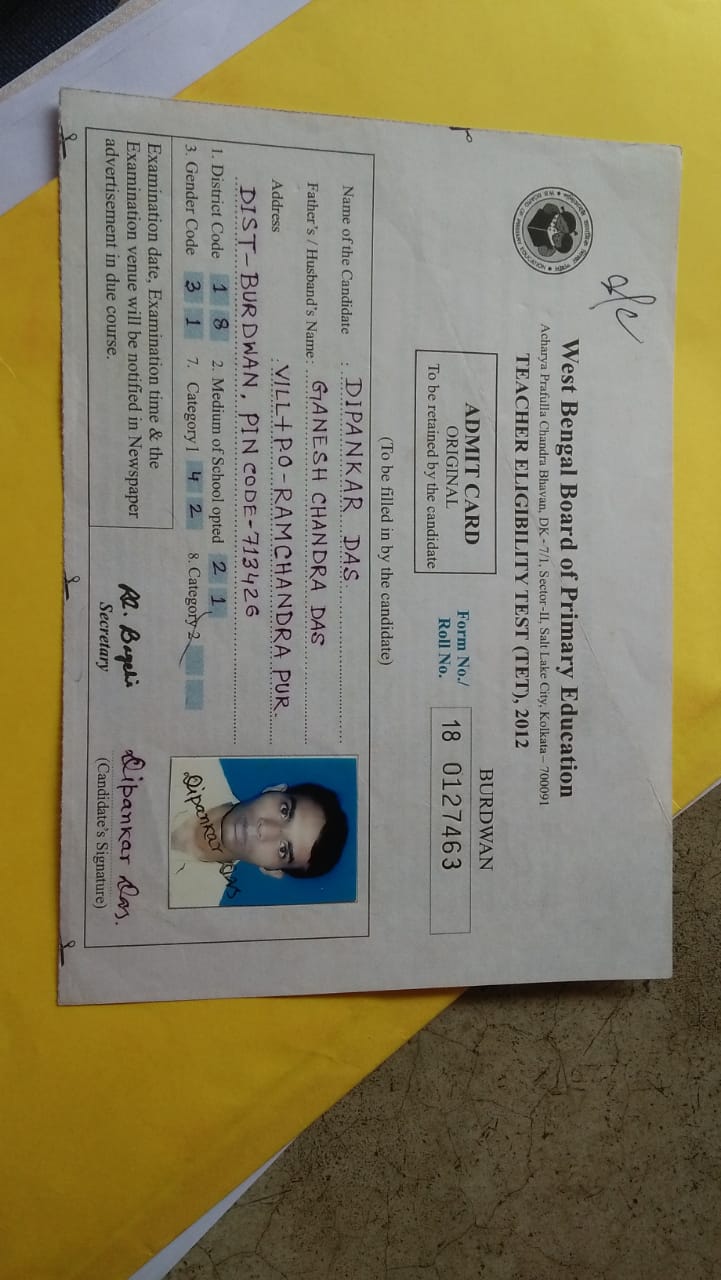 West Bengal Board of Primary Education
Acharya Prafulla Chandra Bhavan, DK - 7/1, Sector-II, Salt Lake City, Kolkata – 700091
TEACHER ELIGIBILITY TEST (TET), 2012
W.B. BOARD OF PRIMARY EDUCATION
ADMIT CARD
ORIGINAL
To be retained by the candidate
BURDWAN
Form No./
Roll No.
18 0127463
(To be filled in by the candidate)
Name of the Candidate : DIPANKAR DAS.
Father's / Husband's Name: GANESH CHANDRA DAS
Address : VILL+P.O-RAMCHANDRA PUR.
DIST-BURDWAN, PIN CODE-713426
1. District Code 1 8 2. Medium of School opted 2 1
3. Gender Code 3 1 7. Category 1 4 2 8. Category 2
Dipankar Das
Examination date, Examination time & the
Examination venue will be notified in Newspaper
advertisement in due course.
Secretary
Dipankar Das.
(Candidate's Signature)